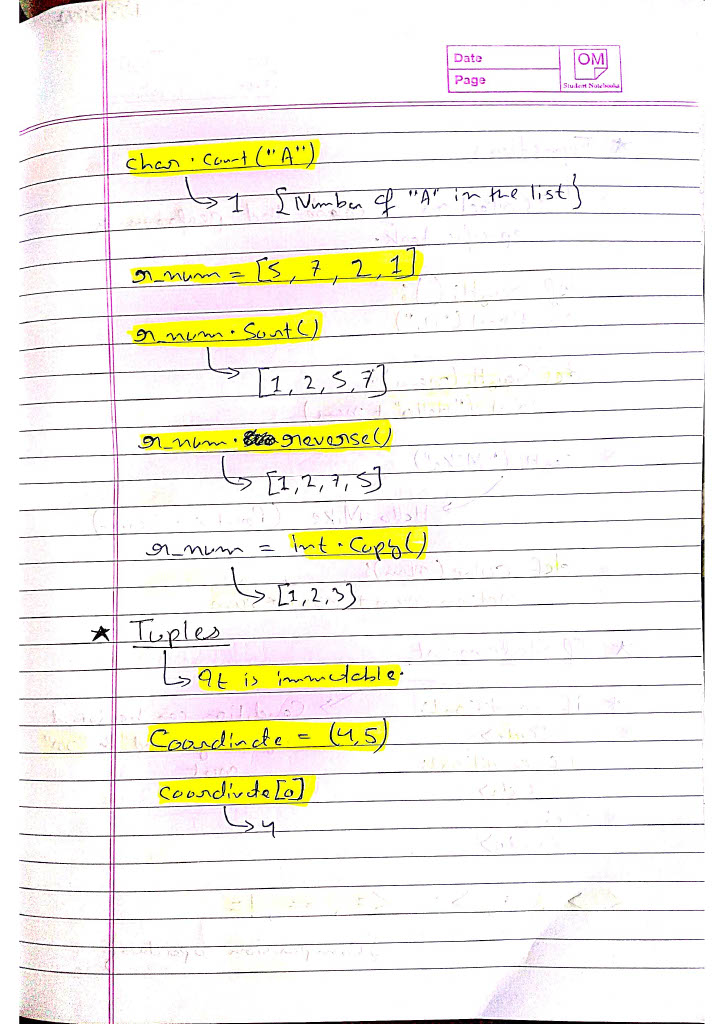 Date
OM
Page
Student Notebooks
char.Count("A")
1 {Number of "A" in the list}
r_num = [5, 7, 2, 1]
r_num.Sort()
[1, 2, 5, 7]
r_num. reverse()
[1, 2, 7, 5]
r_num = Int.Copy()
[1, 2, 3]
★ Tuples
It is immutable.
Coordinate = (4,5)
coordinate[0]
4